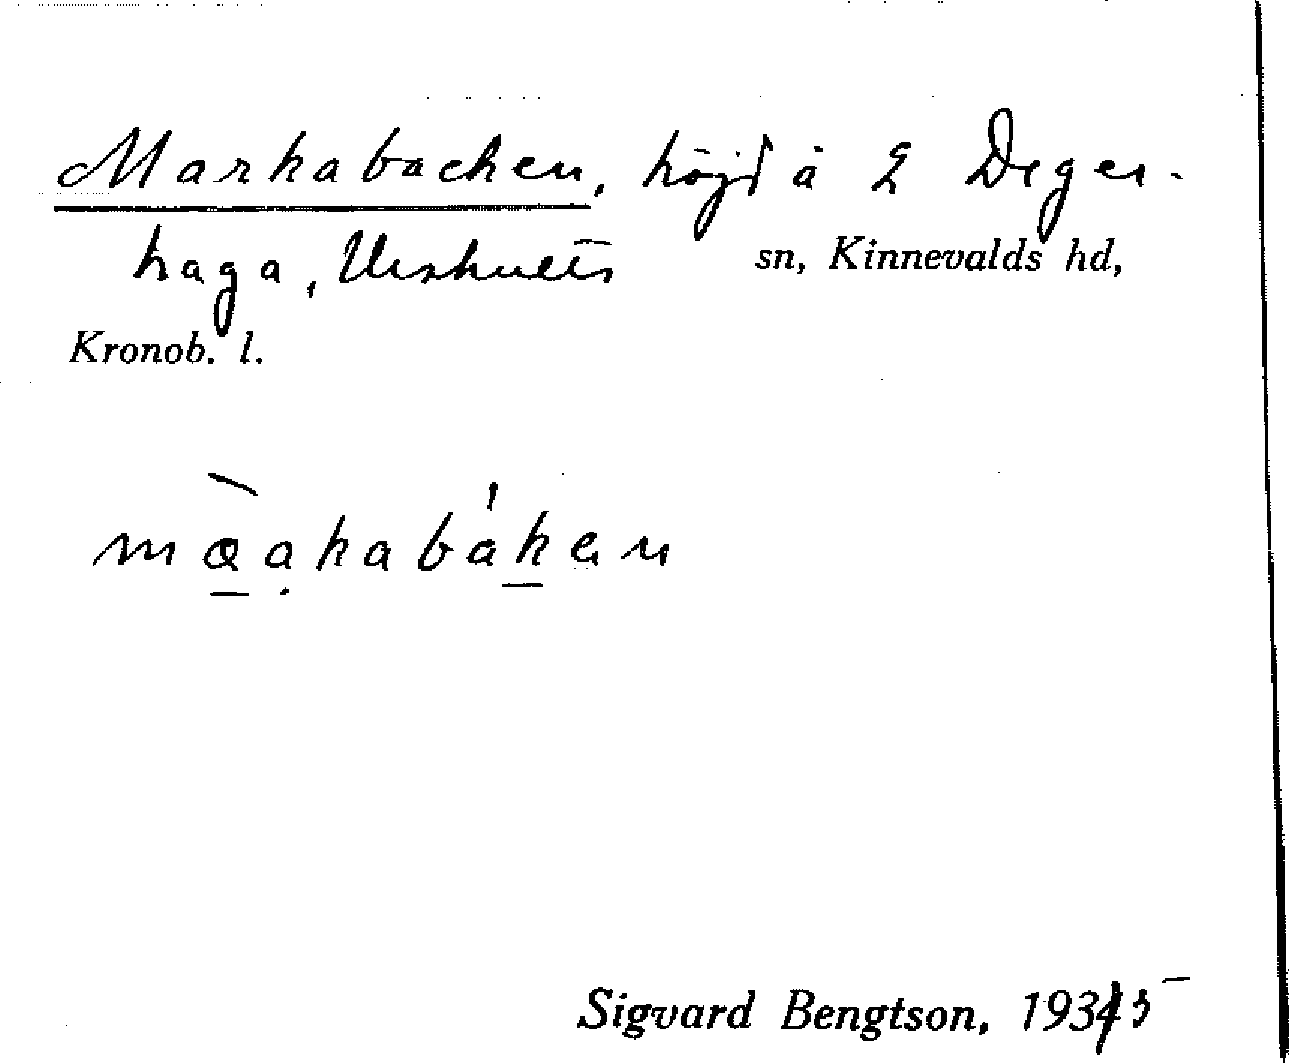 Markabacken, höjd å 2 Deger-
haga, Urshults sn, Kinnevalds hd,
Kronob. l.
Sigvard Bengtson, 1935